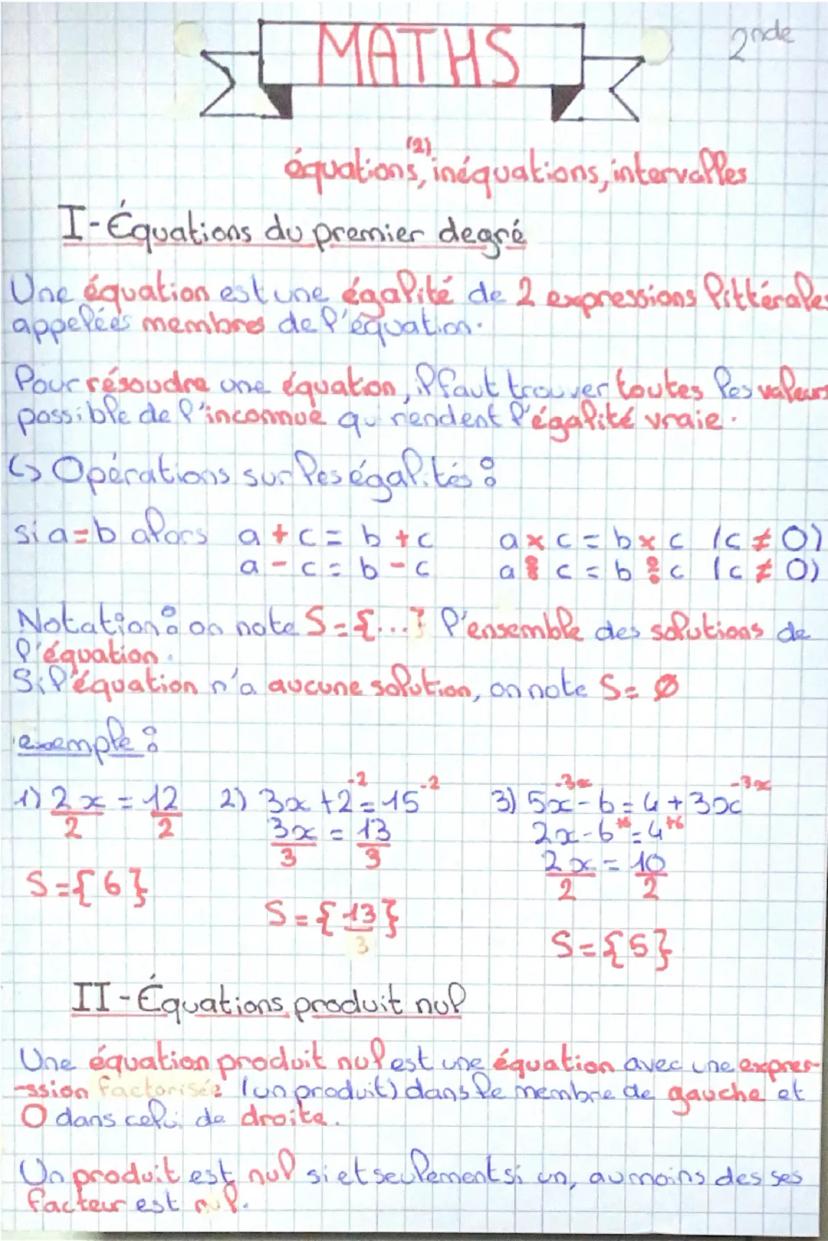 MATHS
2nde
(2)
équations, inéquations, intervalles
I - Équations du premier degré
Une équation est une égalité de 2 expressions littérales
appelées membres de l'équation.
Pour résoudre une équation, il faut trouver toutes les valeurs
possible de l'inconnue qui rendent l'égalité vraie.
↳ Opérations sur les égalités :
si a=b alors a + c = b + c a x c = b x c (c ≠ 0)
a - c = b - c a : c = b : c (c ≠ 0)
Notation : on note S={...} l'ensemble des solutions de
l'équation.
Si l'équation n'a aucune solution, on note S= ∅
exemple :
1) 2x/2 = 12/2 2) 3x +2 -2 = 15 -2 3) 5x -3x - 6 = 4 + 3x -3x
3x/3 = 13/3 2x - 6 +6 = 4 +6
S={6} 2x/2 = 10/2
S={13/3} S={5}
II - Équations produit nul
Une équation produit nul est une équation avec une expres-
-ssion factorisée (un produit) dans le membre de gauche et
0 dans celui de droite.
Un produit est nul si et seulement si un, au moins des ses
facteur est nul.